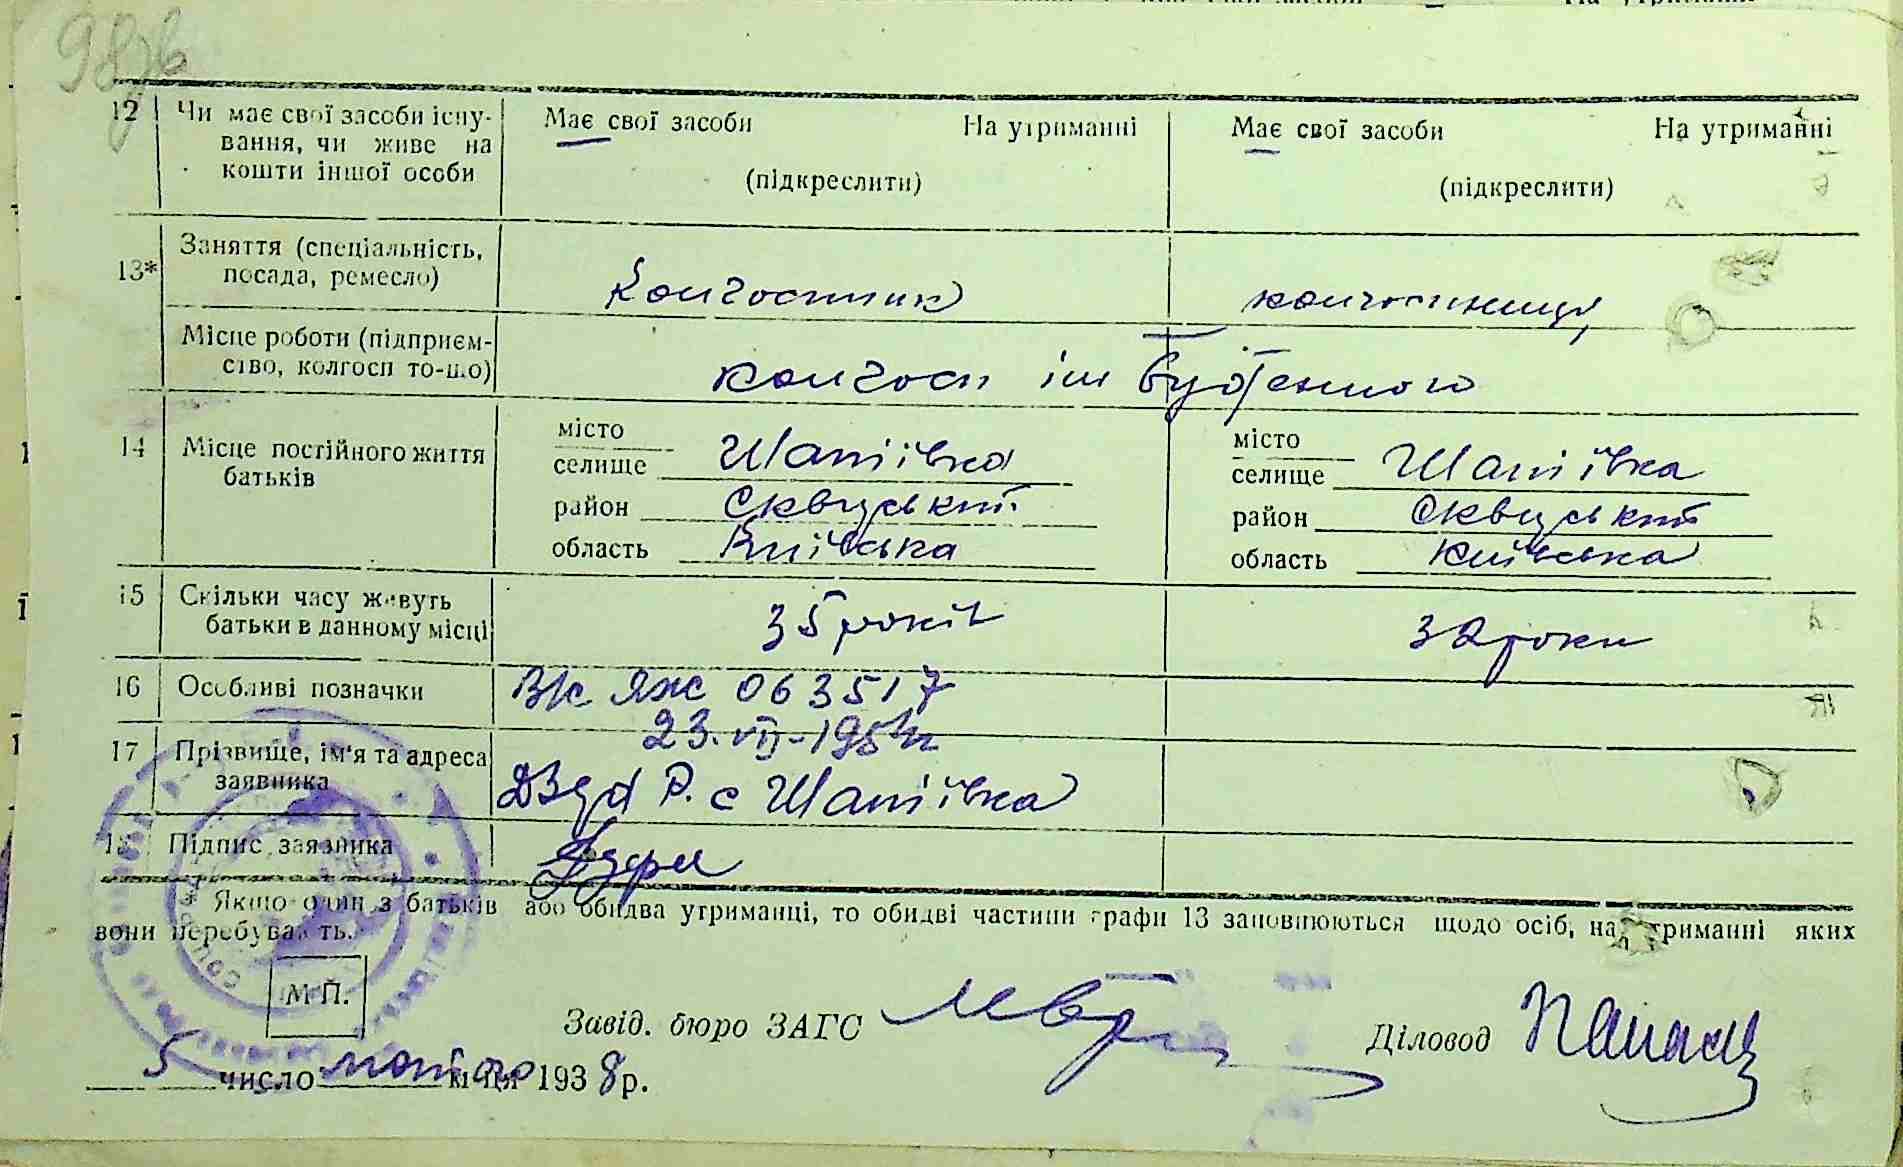 98зв
12 Чи має свої засоби існу- Має свої засоби На утриманні Має свої засоби На утриманні
вання, чи живе на
кошти іншої особи (підкреслити) (підкреслити)
Заняття (спеціальність,
13* посада, ремесло) Колгоспник колгоспниця
Місце роботи (підприєм-
ство, колгосп то-що) колгосп ім Будьенного
місто місто
14 Місце постійного життя селище Шапіївка селище Шапіївка
батьків район Сквирський район Сквирський
область Київська область Київська
15 Скільки часу живуть
батьки в данному місці 35 років 32 роки
16 Особливі позначки Вк Яж 063517
23.VII-195
17 Прізвище, ім'я та адреса
заявника Р. с Шапіївка
18 Підпис заявника
* Якщо один з батьків або обидва утриманці, то обидві частини графи 13 заповнюються щодо осіб, на утриманні яких
вони перебувають.
М П.
Завід. бюро ЗАГС Діловод
5 число лютого м-ця 1938 р.